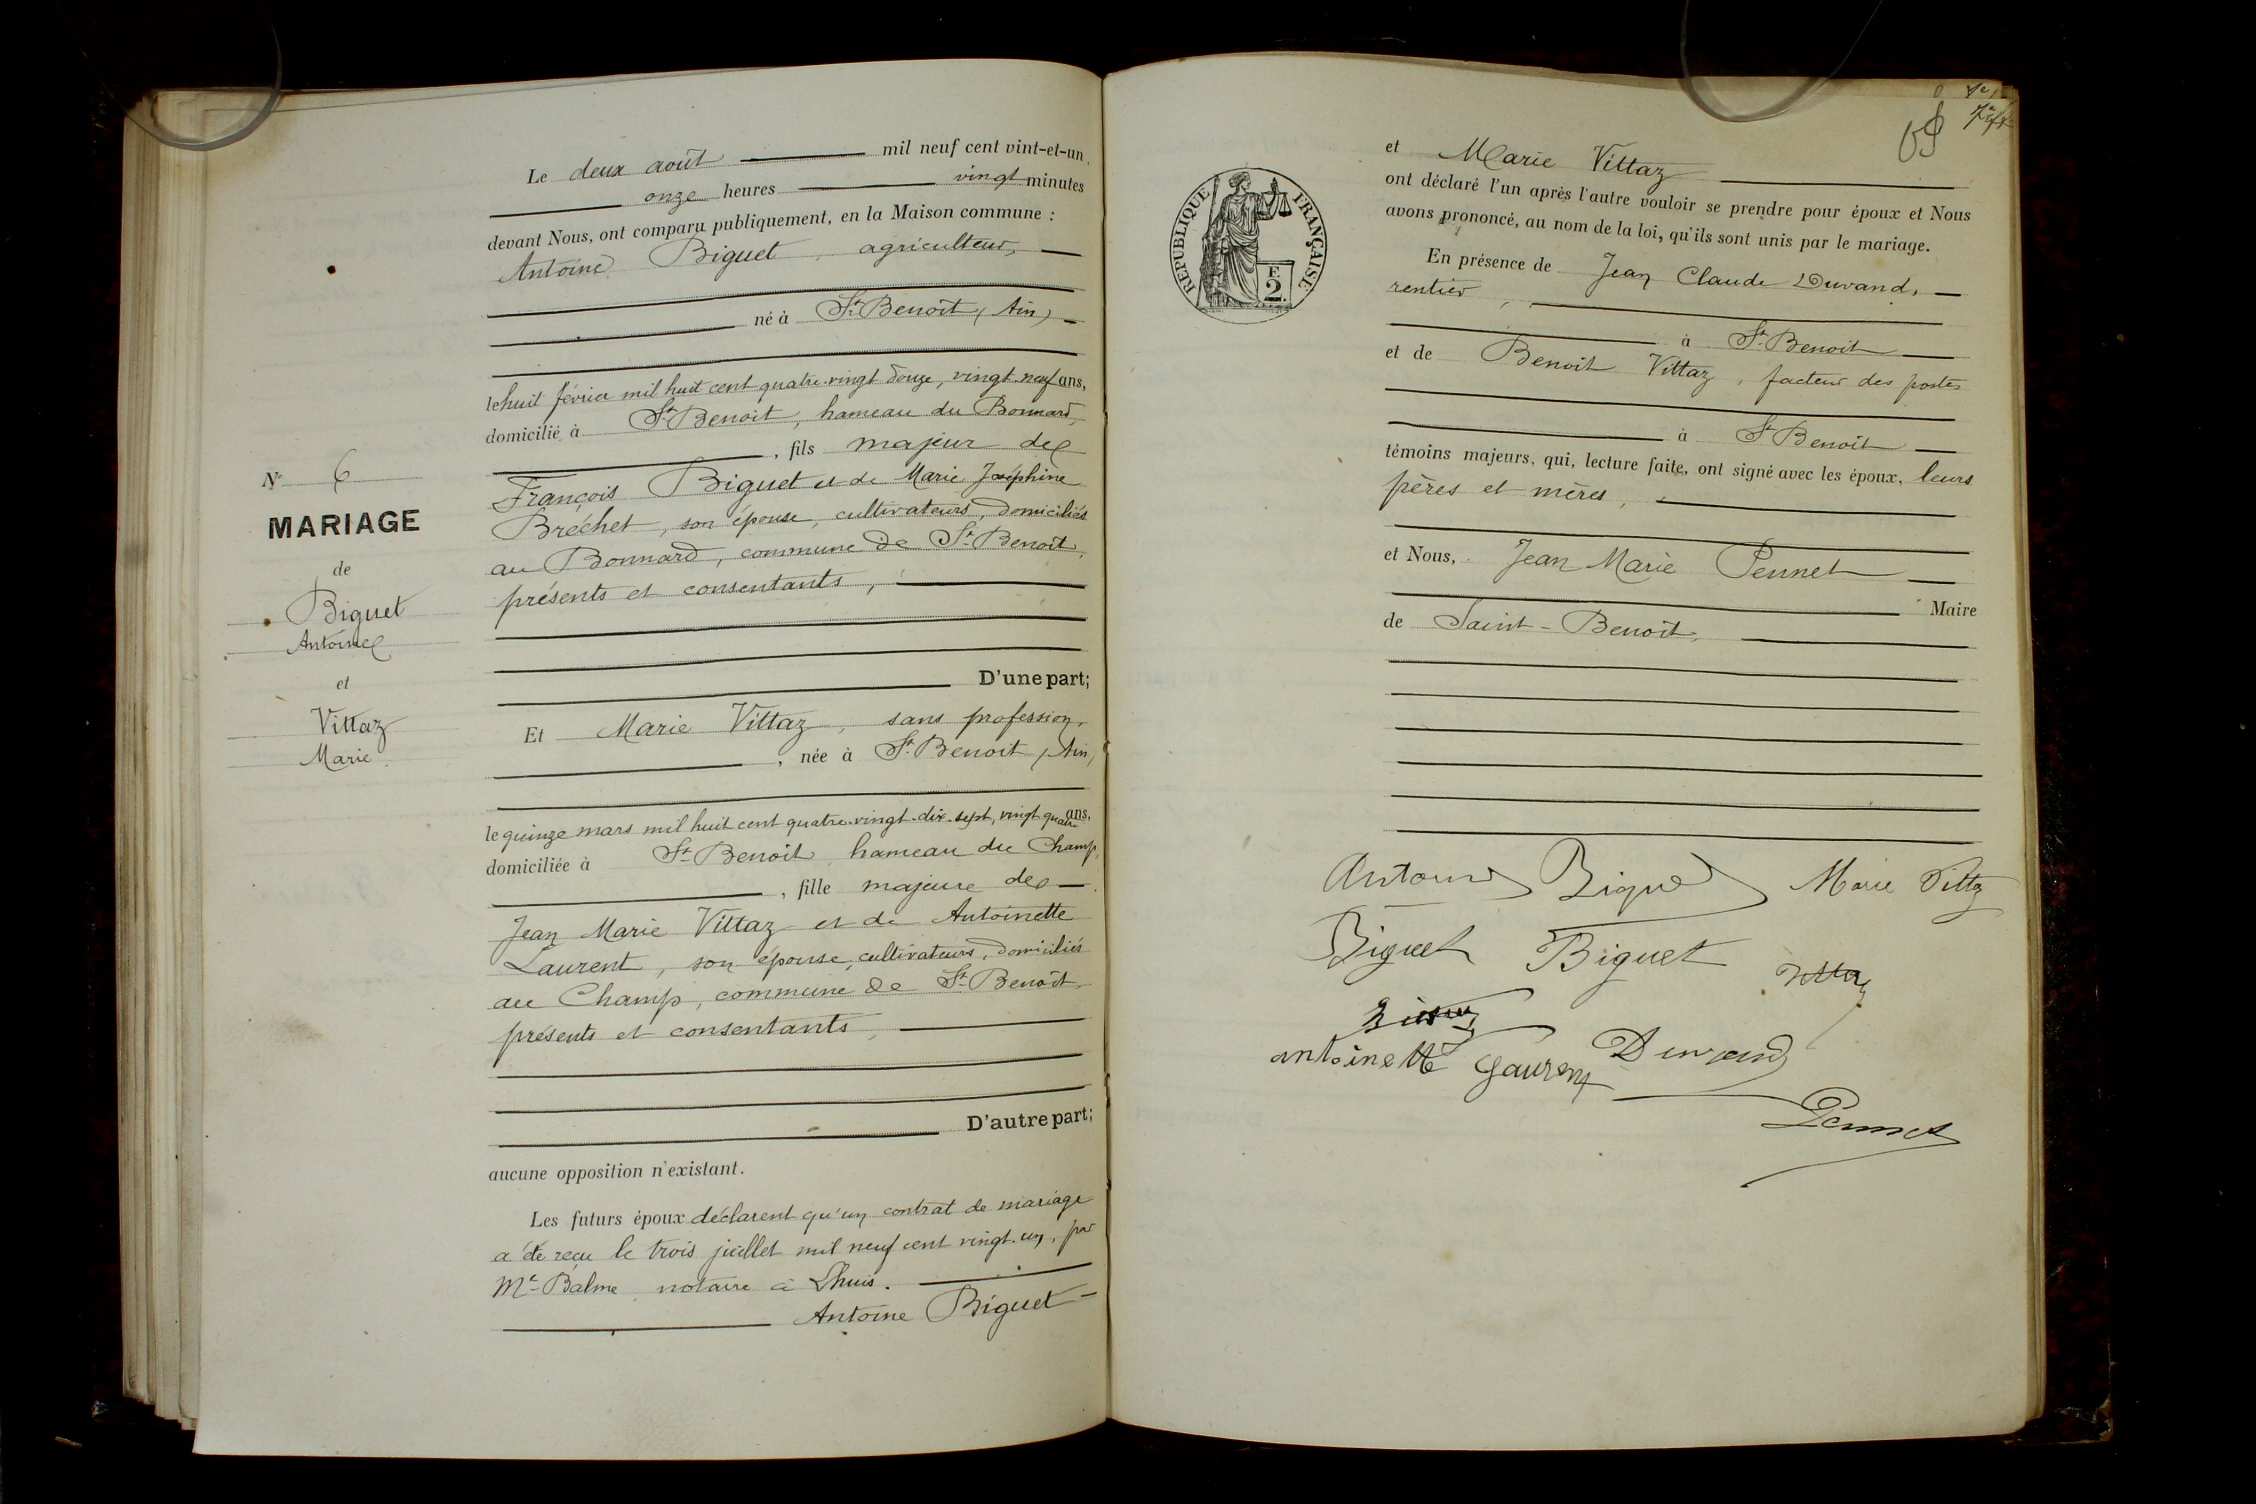 Le deux août mil neuf cent vint-et-un,
onze heures vingt minutes
devant Nous, ont comparu publiquement, en la Maison commune :
Antoine Biguet, agriculteur,
né à St Benoît (Ain)
le huit février mil huit cent quatre-vingt douze, vingt-neuf ans,
domicilié à St Benoit, hameau du Bonnard,
, fils majeur de
François Biguet et de Marie Joséphine
Bréchet, son épouse, cultivateurs, domiciliés
au Bonnard, commune de St Benoît,
présents et consentants,
D'une part;
Et Marie Vittaz, sans profession,
, née à St Benoit (Ain)
le quinze mars mil huit cent quatre-vingt-dix-sept, vingt quatre ans,
domiciliée à St Benoît, hameau du Champ,
, fille majeure de
Jean Marie Vittaz et de Antoinette
Laurent, son épouse, cultivateurs, domiciliés
au Champ, commune de St Benoît,
présents et consentants,
D'autre part;
aucune opposition n'existant.
Les futurs époux déclarent qu'un contrat de mariage
a été reçu le trois juillet mil neuf cent vingt-un, par
Me Balme notaire à Lhuis.
Antoine Biguet
No 6
MARIAGE
de
Biguet
Antoine
et
Vittaz
Marie
et Marie Vittaz
ont déclaré l'un après l'autre vouloir se prendre pour époux et Nous
avons prononcé, au nom de la loi, qu'ils sont unis par le mariage.
En présence de Jean Claude Durand,
rentier,
à St Benoit
et de Benoît Vittaz, facteur des postes
à St Benoît
témoins majeurs, qui, lecture faite, ont signé avec les époux, leurs
pères et mères,
et Nous, Jean Marie Pennet
Maire
de Saint-Benoît,
RÉPUBLIQUE FRANÇAISE
F.
2.
Antoine Biguet Marie Vittaz
Biguet Biguet
antoinette Laurent Durand
Pennet